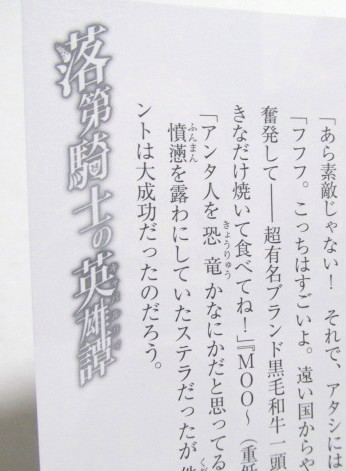 「あら素敵じゃない！　それで、アタシには
「フフフ。こっちはすごいよ。遠い国からや
奮発して――超有名ブランド黒毛和牛一頭
きなだけ焼いて食べてね！」『ＭＯＯ～（重低
「アンタ人を恐竜かなにかだと思ってる
きょうりゅう
憤懣を露わにしていたステラだったが、他
ふんまん
ントは大成功だったのだろう。
落第騎士の英雄譚